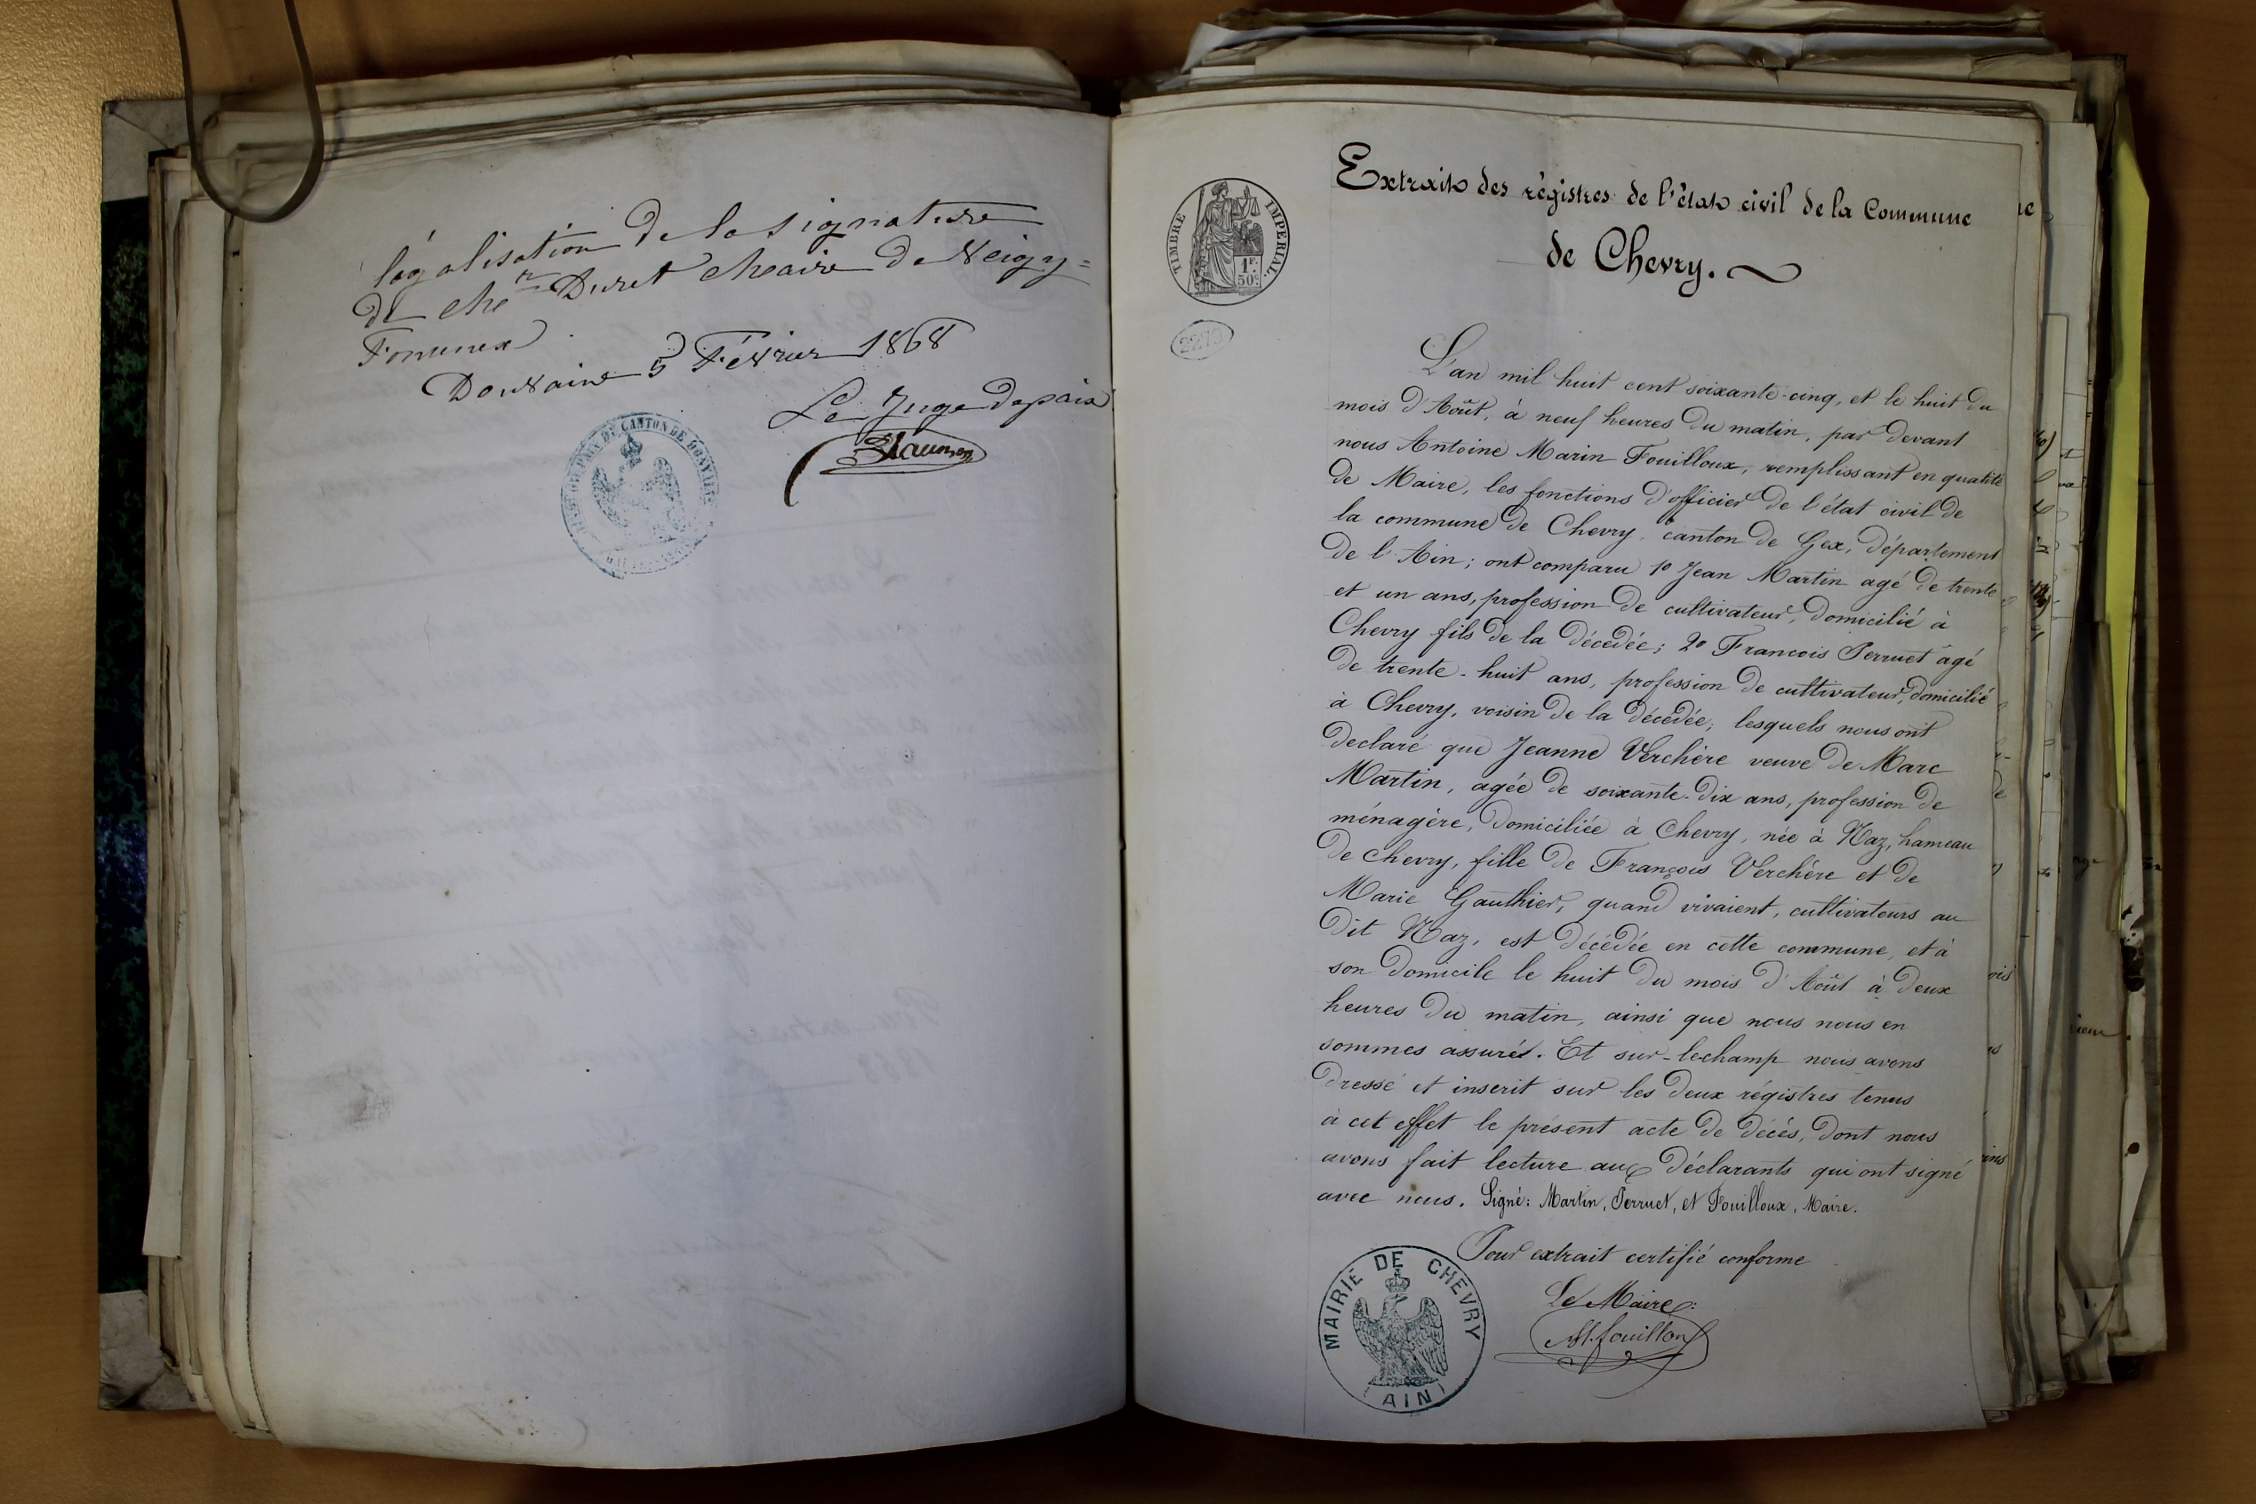 légalisation de la signature
de Mr Duret Maire de Veigy=
Foncenex
Douvaine 5 Février 1868
Le Juge de paix
JUSTICE DE PAIX DU CANTON DE DOUVAINE
Extrait des régistres de l'état civil de la Commune
de Chevry.
TIMBRE IMPERIAL.
1F.
50c.
L'an mil huit cent soixante-cinq, et le huit du
mois d'Août, à neuf heures du matin, par devant
nous Antoine Marin Fouilloux, remplissant en qualité
de Maire, les fonctions d'officier de l'état civil de
la commune de Chevry, canton de Gex, département
de l'Ain; ont comparu 1º Jean Martin agé de trente
et un ans, profession de cultivateur, domicilié à
Chevry fils de la décédée; 2º Francois Perruet âgé
de trente-huit ans, profession de cultivateur, domicilié
à Chevry, voisin de la décédée, lesquels nous ont
declaré que Jeanne Verchère veuve de Marc
Martin, agée de soixante-dix ans, profession de
ménagère, domiciliée à Chevry, née à Naz, hameau
de chevry, fille de François Verchère et de
Marie Gauthier, quand vivaient, cultivateurs au
dit Naz, est décédée en cette commune, et à
son domicile le huit du mois d'Août à deux
heures du matin, ainsi que nous nous en
sommes assuré. Et sur-le-champ nous avons
dressé et inscrit sur les deux régistres tenus
à cet effet le présent acte de décés, dont nous
avons fait lecture aux déclarants qui ont signé
avec nous. Signé: Martin, Perruet, et Fouilloux, Maire.
Pour extrait certifié conforme
Le Maire:
AM. fouilloux
MAIRIE DE CHEVRY
(AIN)